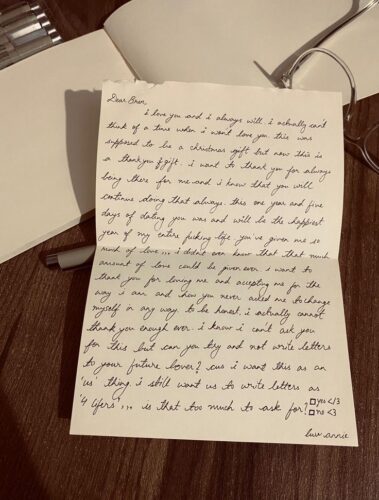 Dear Eren,
i love you and i always will. i actually can't
think of a time when i wont love you. this was
supposed to be a christmas gift but now this is
a thankyou gift. i want to thank you for always
being there for me and i know that you will
continue doing that always. this one year and five
days of dating you was and will be the happiest
year of my entire fucking life. you've given me so
much of love,,, i didn't even know that that much
amount of love could be given ever. i want to
thank you for loving me and accepting me for the
way i am and how you never asked me to change
myself in any way. to be honest, i actually cannot
thank you enough ever. i know i can't ask you
for this but can you try and not write letters
to your future lover? cus i want this as an
'us' thing. i still want us to write letters as
'4 lifers',,, is that too much to ask for? □ yes </3
□ no <3
luv annie